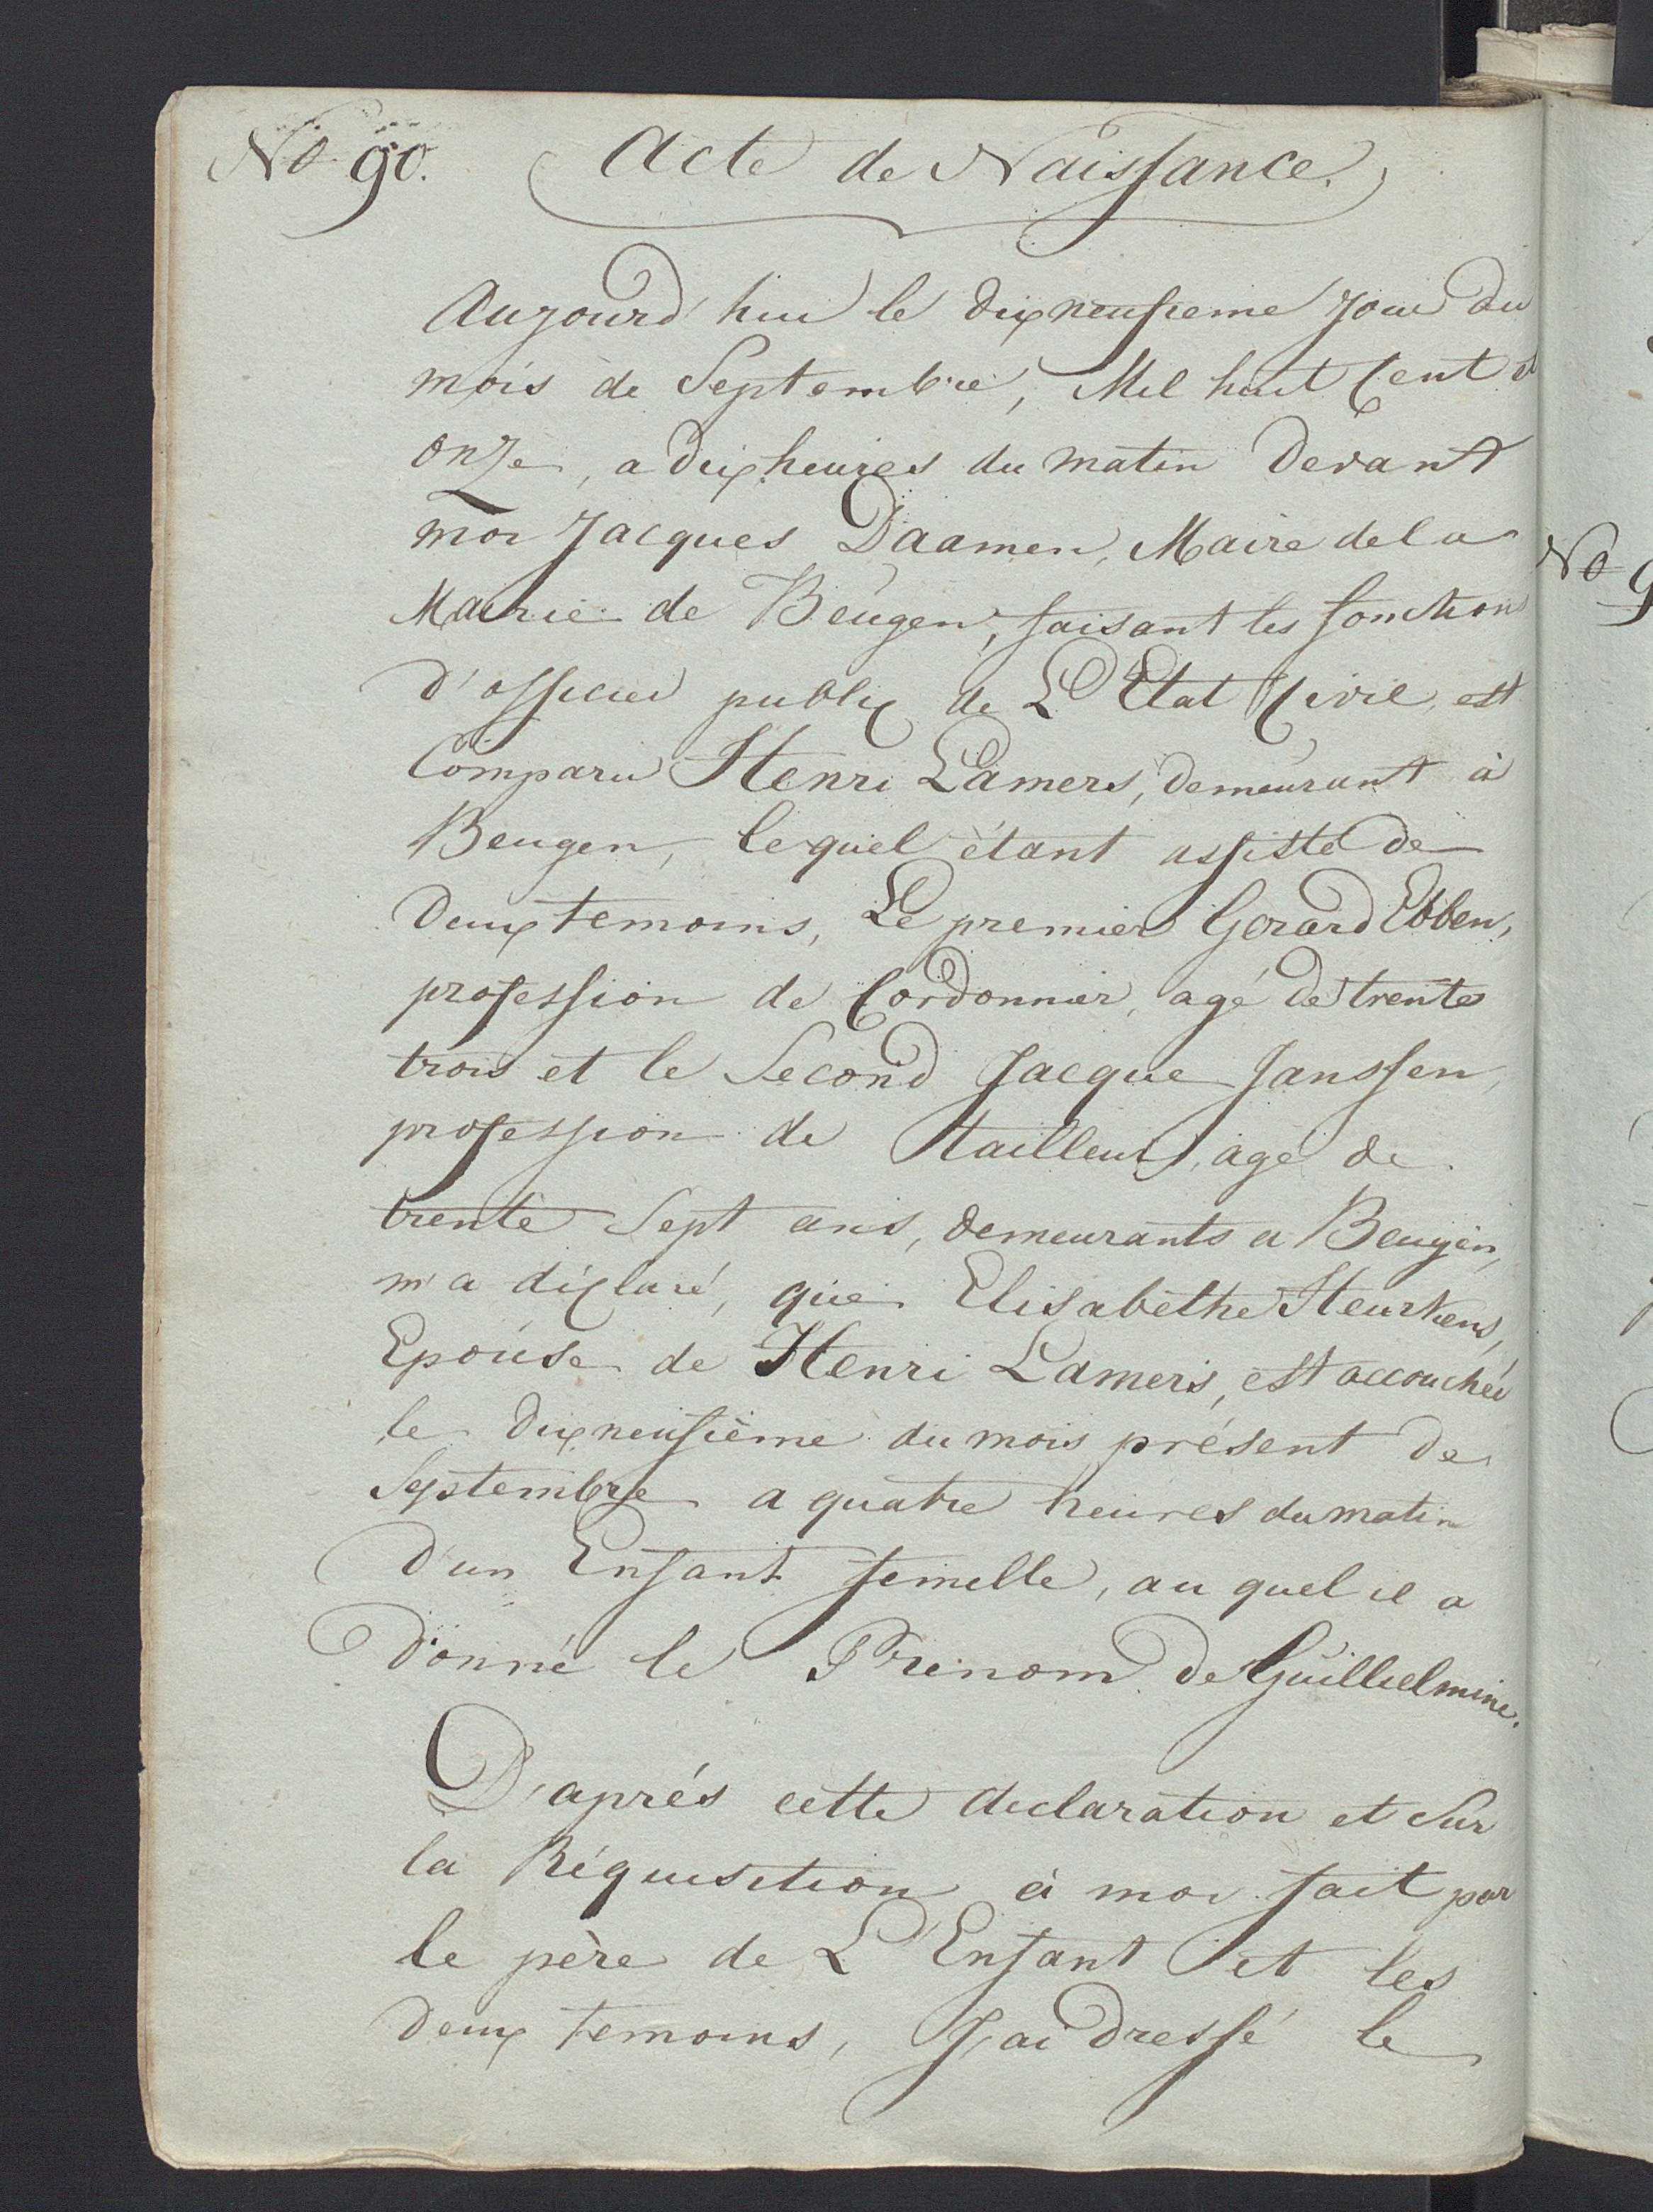 No 90. Acte de Naissance.
Aujourd'hui le dixneufieme Jour du
mois de Septembre, Mil huit Cent et
onze, a dix heures du matin devant
moi Jacques Daamen, Maire de la
Mairie de Beugen, faisant les fonctions
d'officier public de L'Etat Civil, est
Comparu Henri Lamers, demeurant à
Beugen, lequel étant assisté de
deux temoins, Le premier Gerard Ebben,
profession de Cordonnier, agé de trente
trois et le Second Jacque Janssen,
profession de tailleur, agé de
trente Sept ans, demeurants a Beugen,
m'a déclaré, que Elisabethe Heurkens,
Epouse de Henri Lamers, est accouchée
le dixneufième du mois présent de
Septembre a quatre heures du matin
d'un Enfant femelle, au quel il a
donné le Prenom de Guillielmine.
D'aprés cette declaration et Sur
la Réquisition à moi fait par
le père de L'Enfant et les
deux temoins, J'ai dressé le
No 9